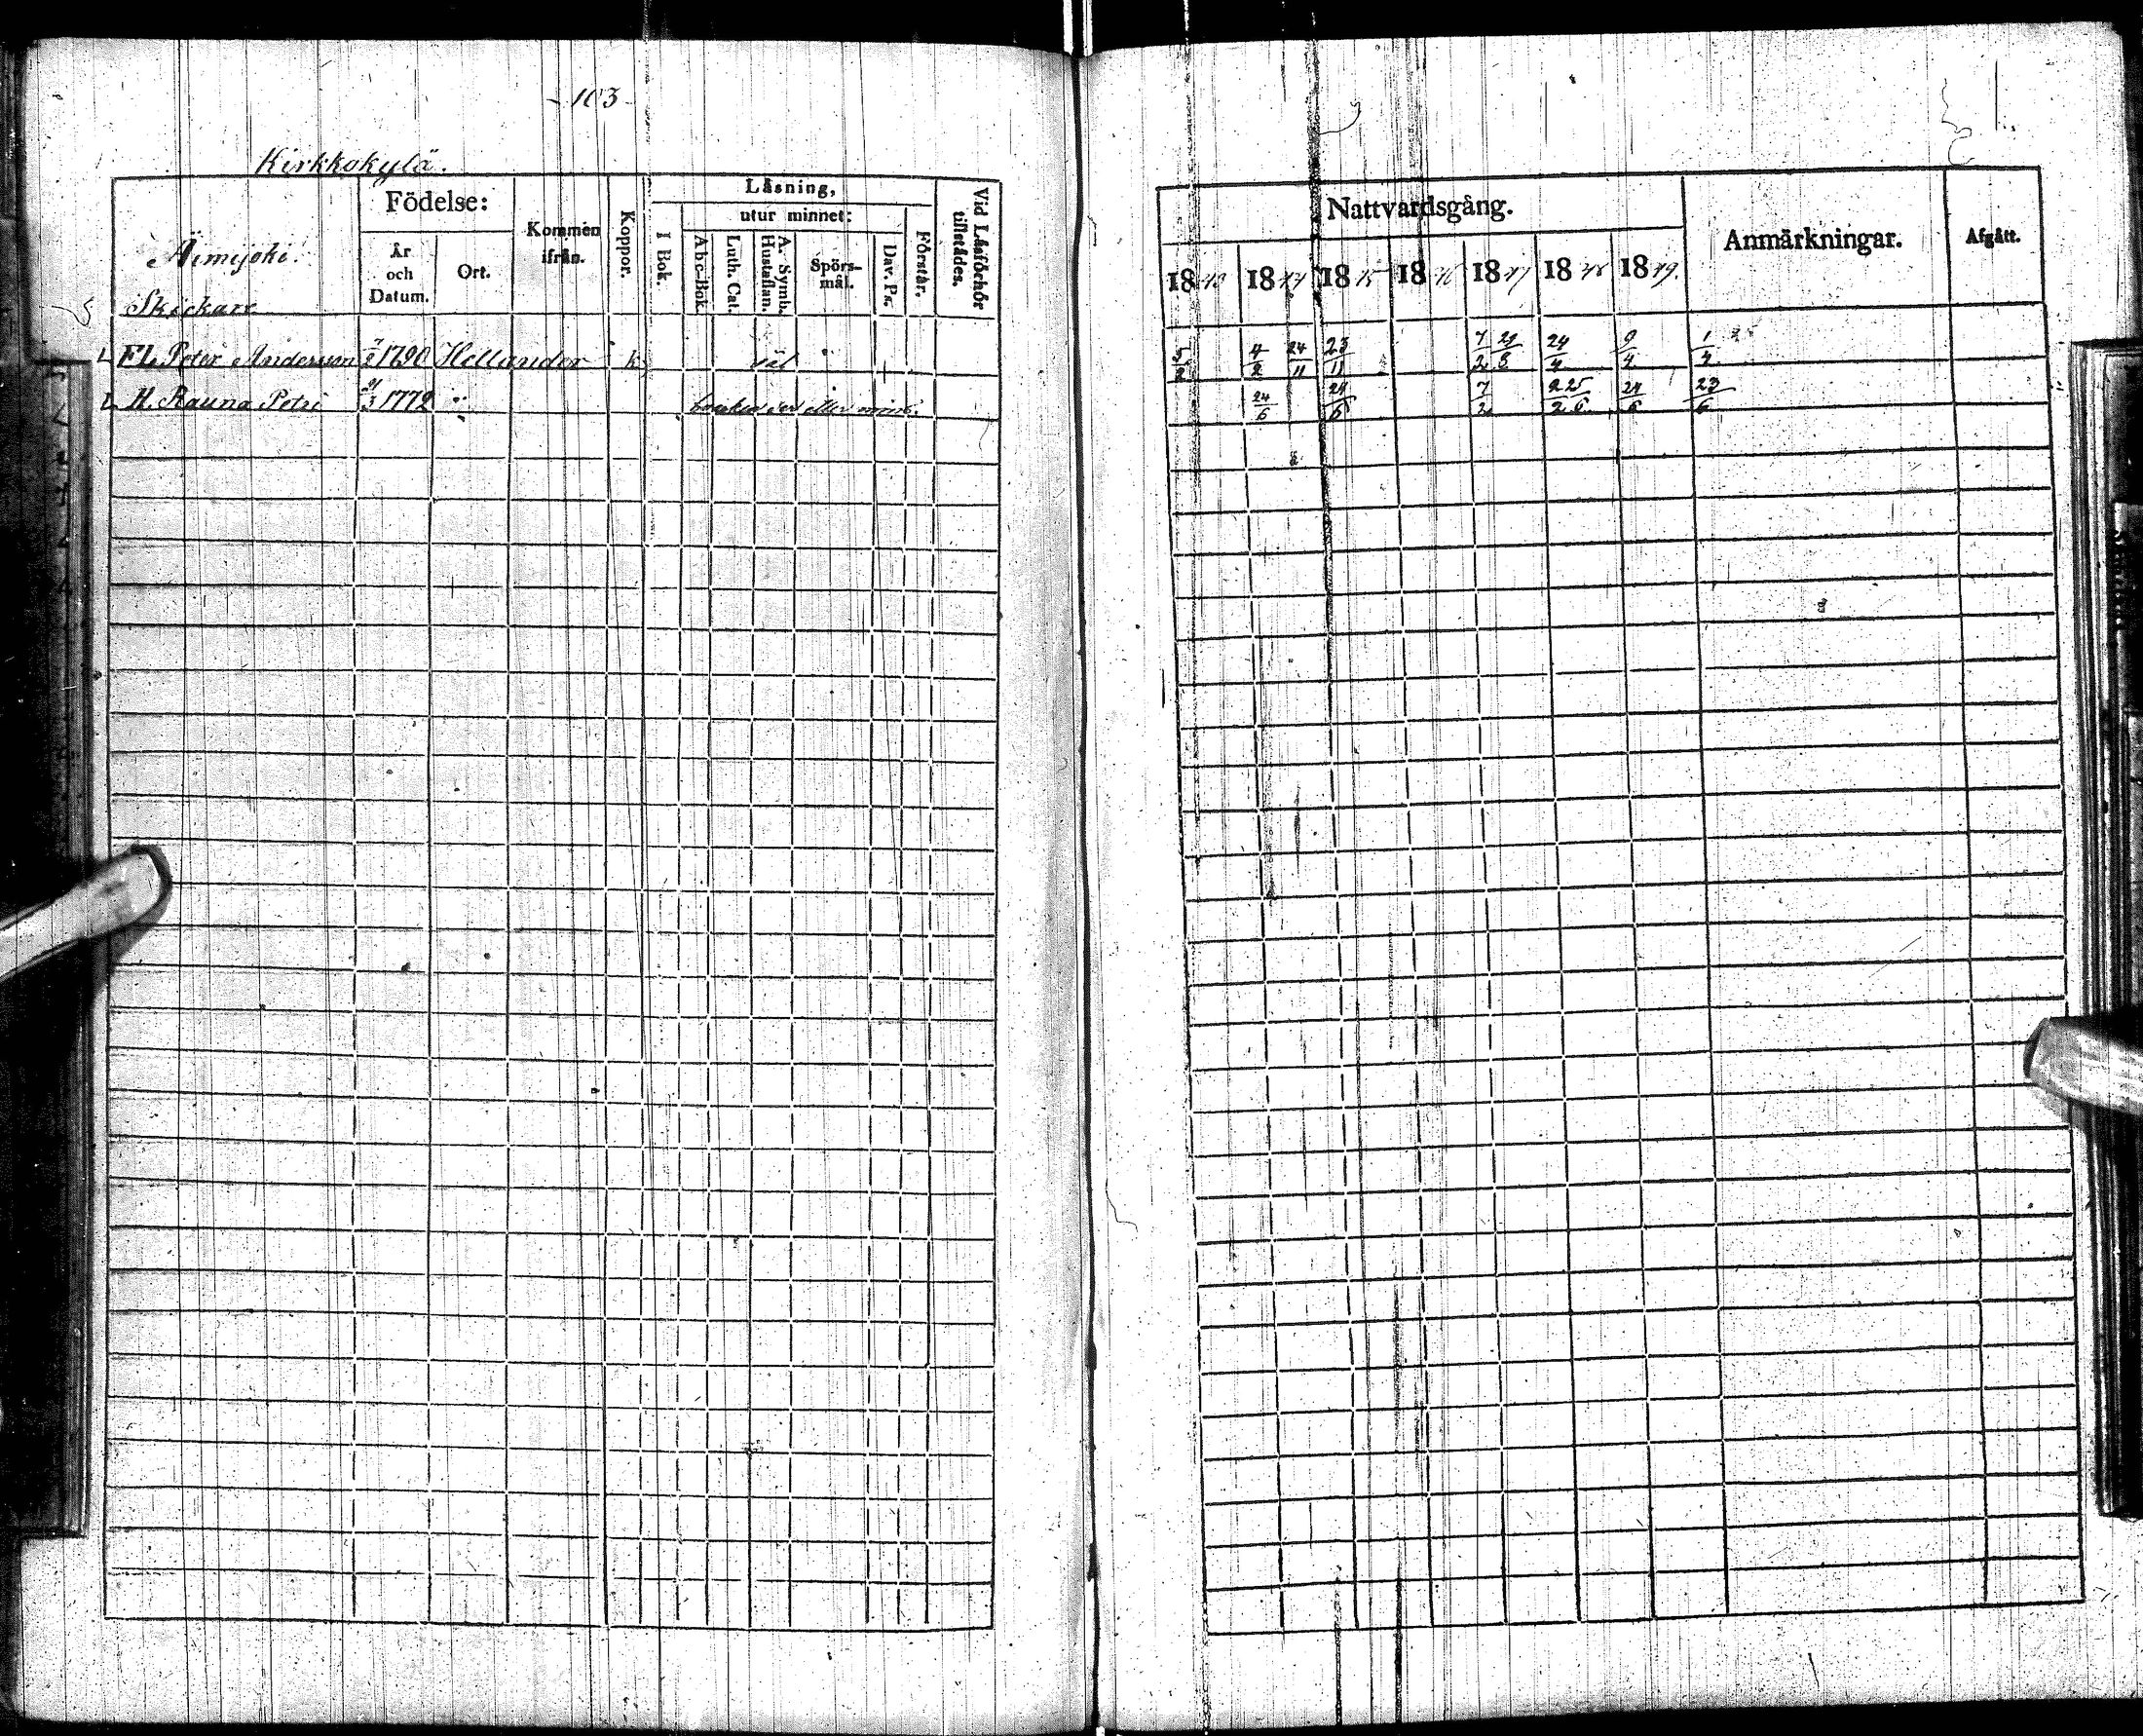 - 103 -
Kirkkokylä.
Äimijoki.
Skickare
Födelse:
År och Datum.
Ort.
Kommen ifrån.
Koppor.
Låsning,
I Bok.
utur minnet:
Abc-Bok
Luth. Cat.
A. Symb. Hustaflan.
Spörs-mål.
Dav. Ps.
Förstår.
Vid Låsförhör tillstådes.
L Fl. Peter Andersson 1790 Hellander k
L H. Rauna Petri 1772 "
Nattvardsgång.
Anmärkningar.
Afgått.
18 43 18 44 18 45 18 46 18 47 18 48 18 49.
5/2 4/2 24/11 23/11 7/2 24/4 9/4 1/4
24/6 24/6 7/2 24/6 23/6